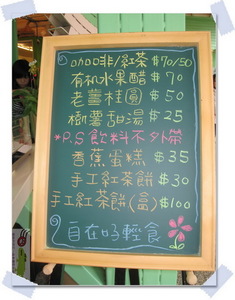 咖啡/紅茶 $70/50
有机水果醋 $70
老薑桂圓 $50
樹薯甜湯 $25
*P.S飲料不外帶
香蕉蛋糕 $35
手工紅茶餅 $30
手工紅茶餅(盒) $100
自在好輕食